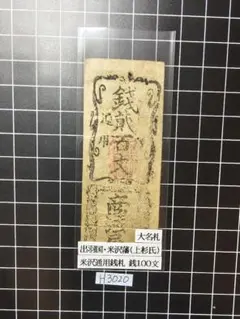 銭貳百文
通用
大名札
出羽国・米沢藩(上杉氏)
米沢通用銭札 銭100文
H3020